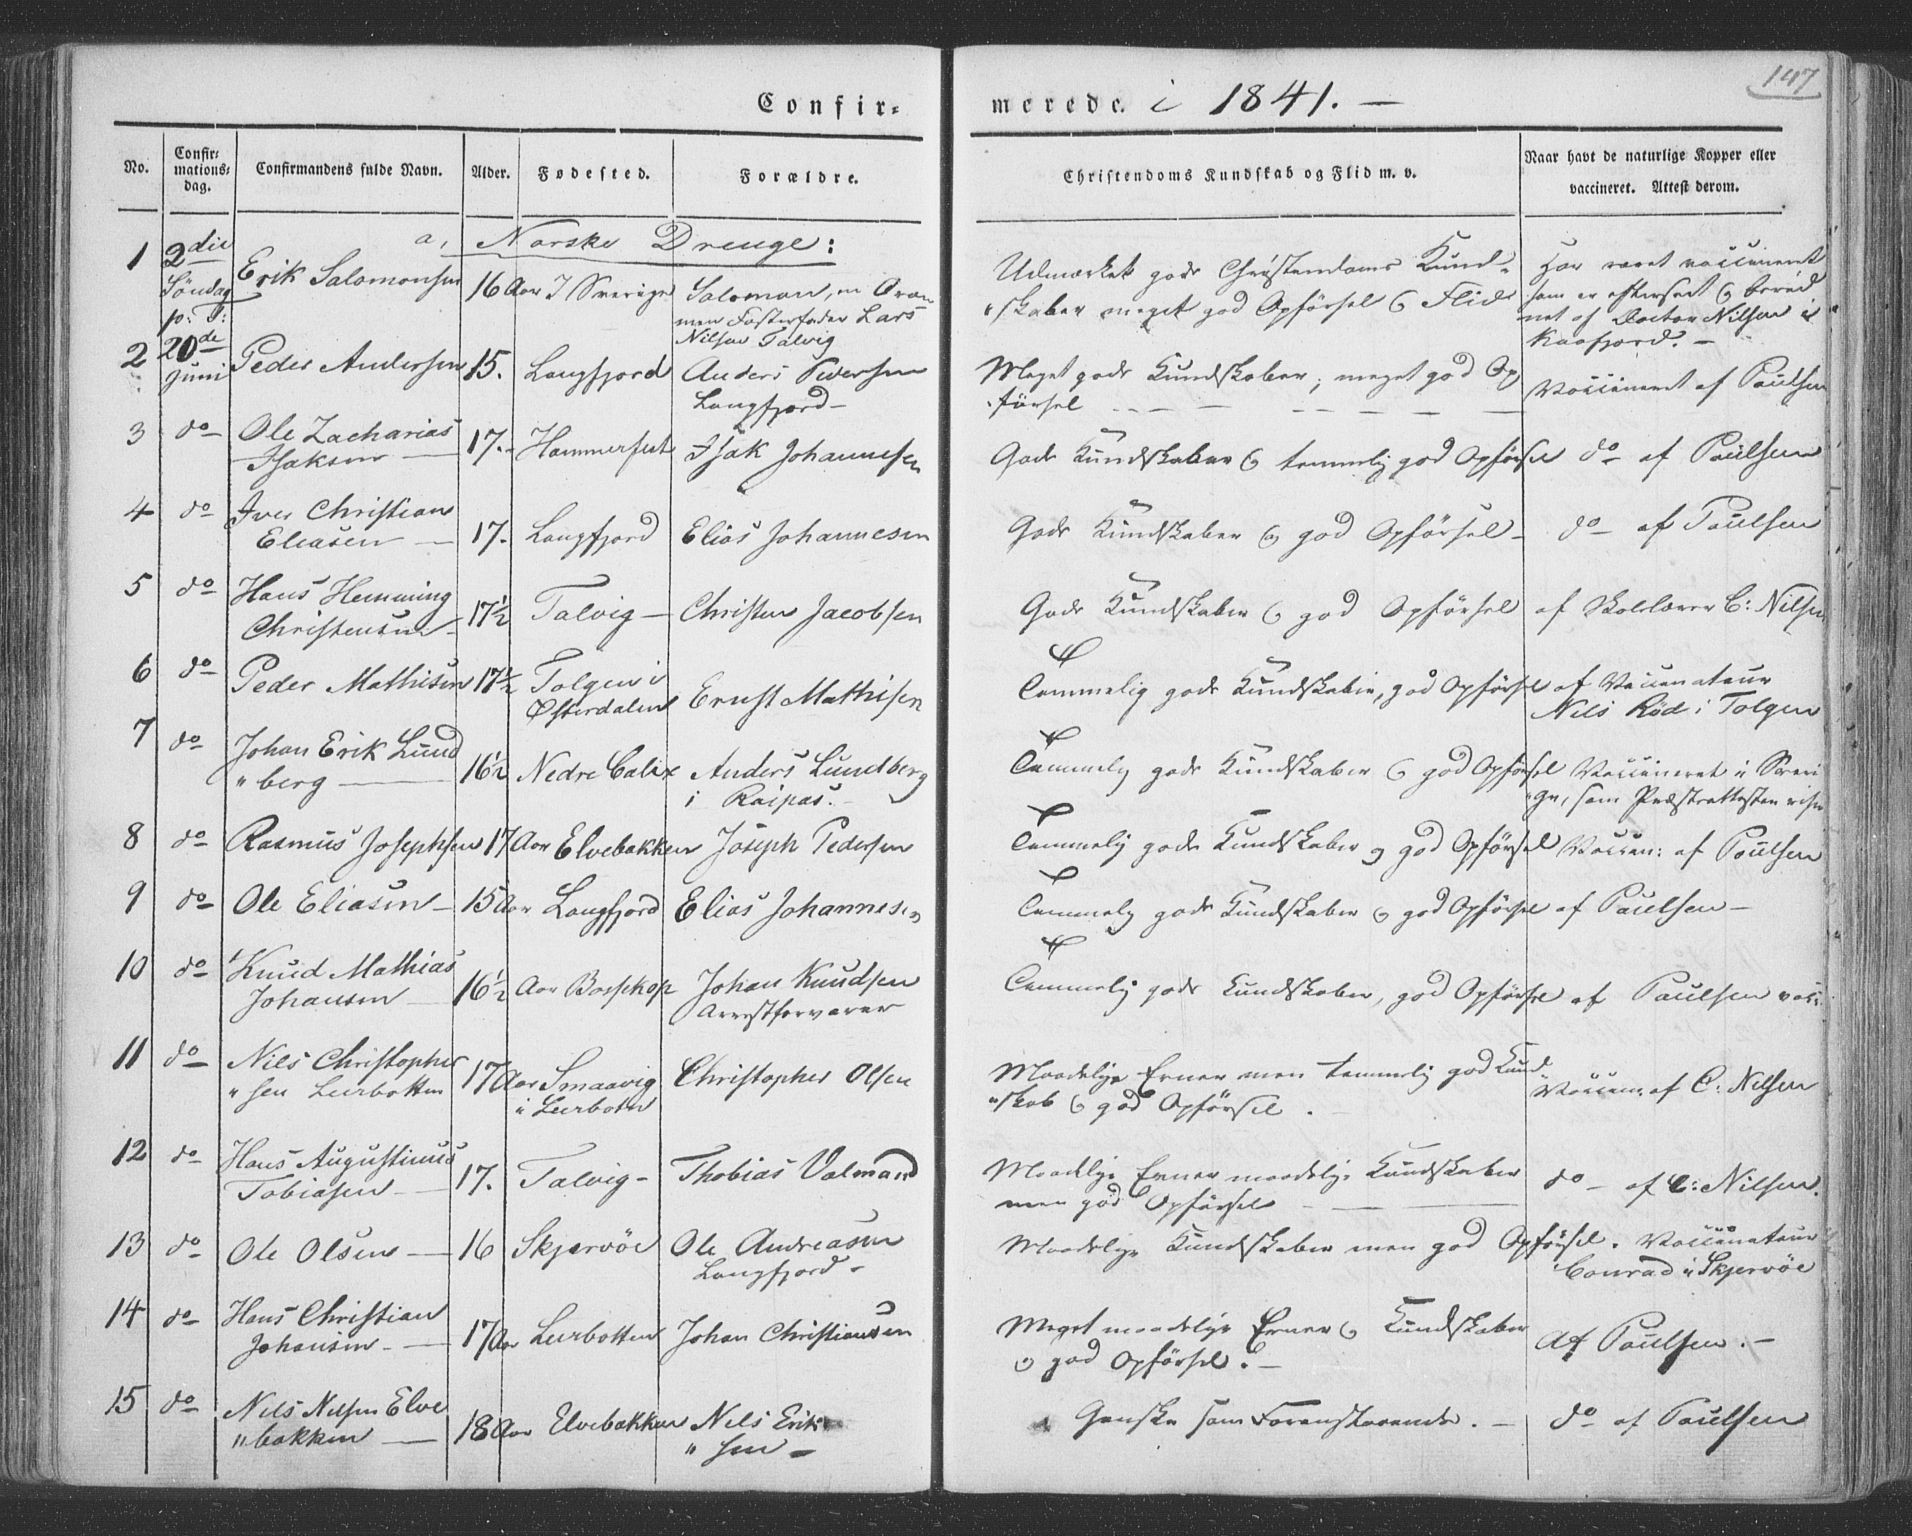 147
Confir=
merede. i 1841. —
No.
Confir=
mations=
dag.
Confirmandens fulde Navn.
Alder.
Fødested.
Forældre.
Christendoms Kundskab og Flid m. v.
Naar havt de naturlige Kopper eller
vaccineret. Attest derom.
a, Norske Drenge:
1 2die Søndag p: T: 20de Juni
Erik Salomonsen 16 Aar I Sverige
Salomon,
men Fosterfader Lars
Nilsen Talvig
Udmærket gode Christendoms Kund-
"skaber meget god Opførsel & Flid
Har været vaccineret
som er efterseet &
af Doctor Nilsen i
Kaafjord. —
2 Peder Andersen 15. Langfjord Anders Pedersen
Langfjord —
Meget gode Kundskaber; meget god Op
førsel — — — Vaccineret af Paulsen
3 do — Ole Zacharias
Isaksen — 17. Hammerfest Isak Johannesen
Gode Kundskaber & temmelig god Opførsel do — af Paulsen
4 do Iver Christian
Eliasen — 17. Langfjord Elias Johannesen
Gode Kundskaber & god Opførsel — do — af Paulsen
5 do Hans Hemming
Christensen — 17½ Talvig — Christen Jacobsen
Gode Kundskaber & god Opførsel af Skolelærer C: Nilsen
6 do Peder Mathisen 17½ Tolgen i
Østerdalen Ernst Mathisen
Temmelig gode Kundskaber, god Opførsel af Vaccinateur
Nils Rød i Tolgen
7 do Johan Erik Lund
"berg — 16½ Nedre Calix Anders Lundberg
i Raipas. —
Temmelig gode Kundskaber & god Opførsel Vaccineret i Sveri
"ge, som Præsteattesten viser
8 do Rasmus Josephsen 17 Aar Elvebakken Joseph Pedersen
Temmelig gode Kundskaber og god Opførsel Vaccin: af Paulsen
9 do Ole Eliasen — 15 Aar Langfjord Elias Johannesen
Temmelig gode Kundskaber & god Opførsel af Paulsen —
10 do Knud Mathias
Johansen — 16½ Aar Bossekop Johan Knudsen
Arrestforvarer
Temmelig gode Kundskaber, god Opførsel af Paulsen vacc:
11 do Nils Christopher
"sen Leerbotten 17 Aar Smaavig
i Leerbotn Christopher Olsen
Maadelige Evner men temmelig god Kund
"skab & god Opførsel. Vaccin: af C: Nilsen
12 do Hans Augustinus
Tobiasen — 17. Talvig — Thobias Valmand
Maadelige Evner maadelige Kundskaber
men god Opførsel — — — do — af C: Nilsen.
13 do Ole Olsen — 16 Skjervöe Ole Andreasen
Langfjord —
Maadelige Kundskaber men god Opførsel. Vaccinateur
Conrad i Skjervöe
14 do Hans Christian
Johansen — 17 Aar Leerbotten Johan Christiansen
Meget maadelige Evner & Kundskaber
& god Opførsel. — Af Paulsen. —
15 do Nils Nilsen Elve
"bakken — 18 Aar Elvebakken Nils Erik
"sen —
Ganske som Foranstaaende. — do — af Paulsen